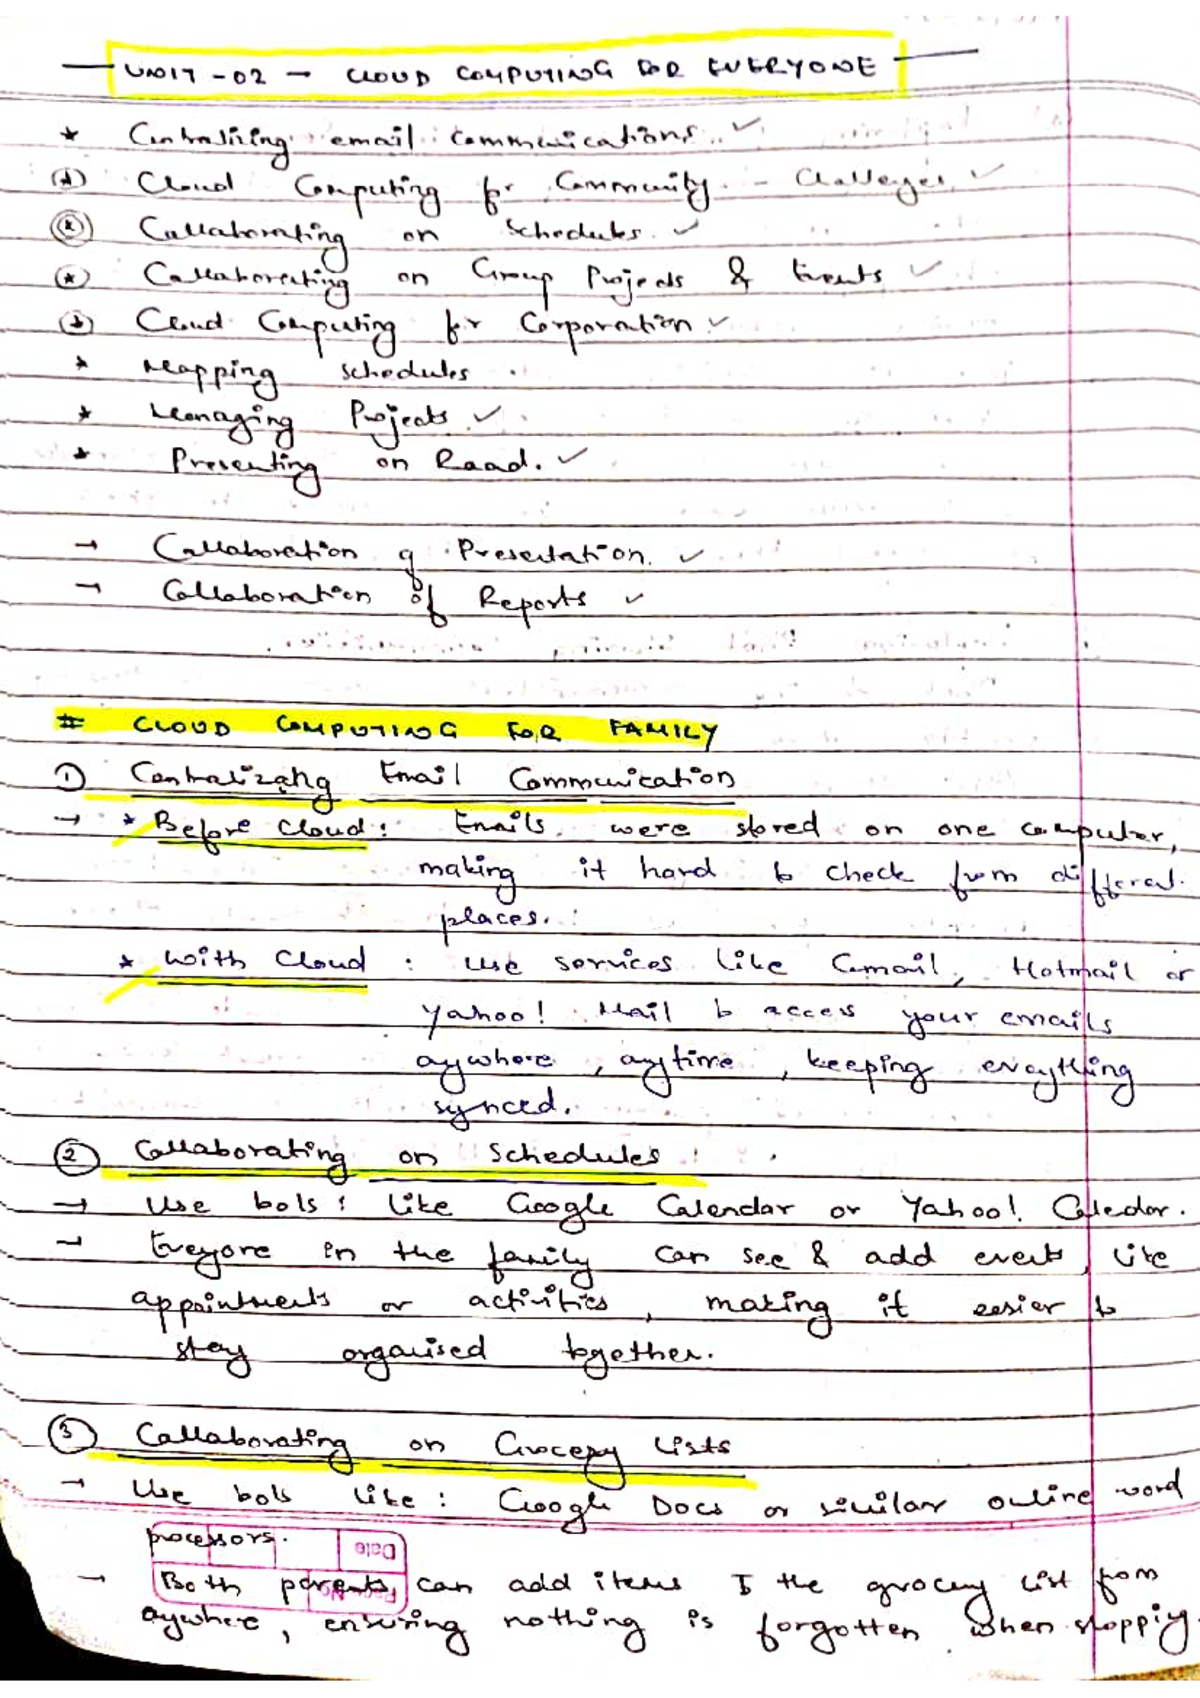 UNIT - 02 → CLOUD COMPUTING FOR EVERYONE
* Centralizing email communications. ✓
* Cloud Computing for Community - Challenges ✓
* Collaborating on Schedules. ✓
* Collaborating on Group Projects & Events ✓
* Cloud Computing for Corporation ✓
* Mapping schedules
* Managing Projects ✓
* Presenting on Road. ✓
→ Collaboration of Presentation. ✓
→ Collaboration of Reports ✓
# CLOUD COMPUTING FOR FAMILY
① Centralizing Email Communication
→ * Before Cloud: Emails were stored on one computer,
making it hard to check from different
places.
* With Cloud : Use services like Gmail, Hotmail or
Yahoo! Mail to access your emails
aywhere, anytime, keeping eveything
synced.
② Collaborating on Schedules
→ Use tools: like Google Calendar or Yahoo! Caledar.
→ Eveyone in the family can see & add events, like
appointments or activities, making it easier to
stay organised together.
③ Collaborating on Grocery Lists
→ Use tools like: Google Docs or similar online word
processors.
Date
→ Both parents can add items to the grocery list from
Page No
aywhere, ensuring nothing is forgotten when shoppig.